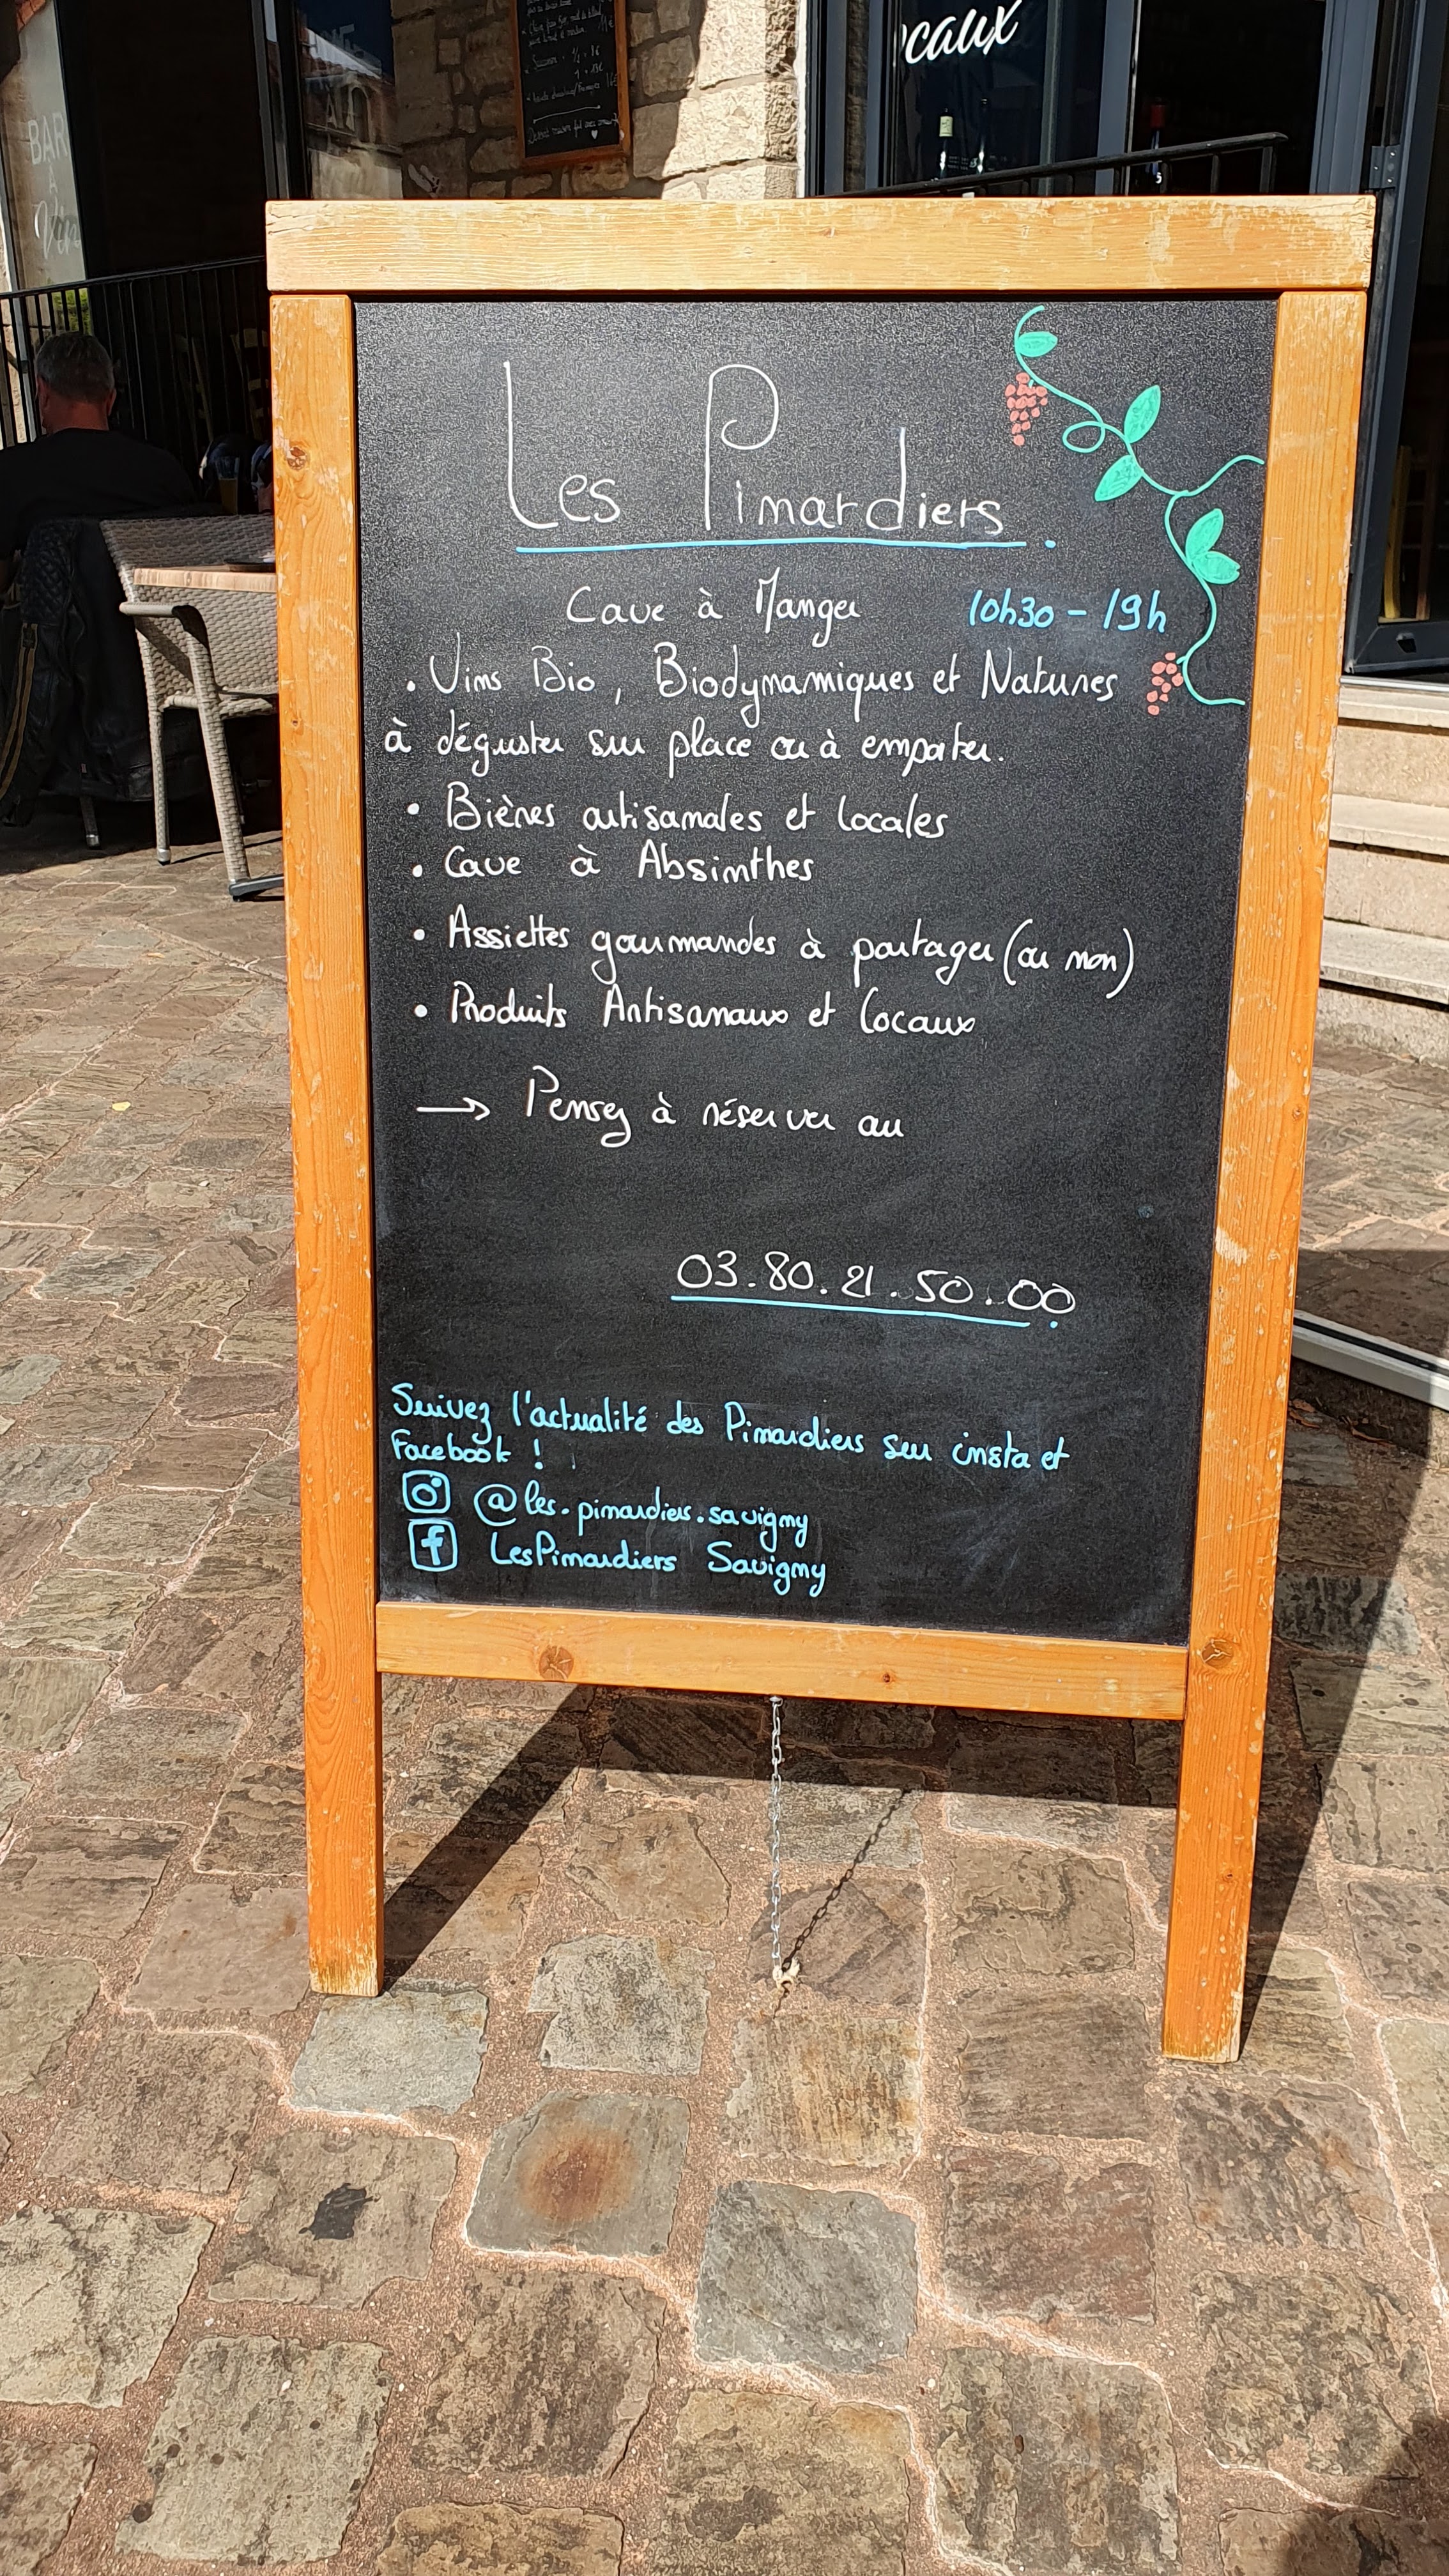 BAR
À
Vin
ocaux
Les Pinardiers.
Cave à Manger 10h30 - 19h
• Vins Bio, Biodynamiques et Natures
à déguster sur place ou à emporter.
• Bières artisanales et locales
• Cave à Absinthes
• Assiettes gourmandes à partager (ou non)
• Produits Artisanaux et Locaux
→ Pensez à réserver au
03.80.21.50.00
Suivez l'actualité des Pinardiers sur insta et
Facebook !
@les.pinardiers.savigny
f LesPinardiers Savigny